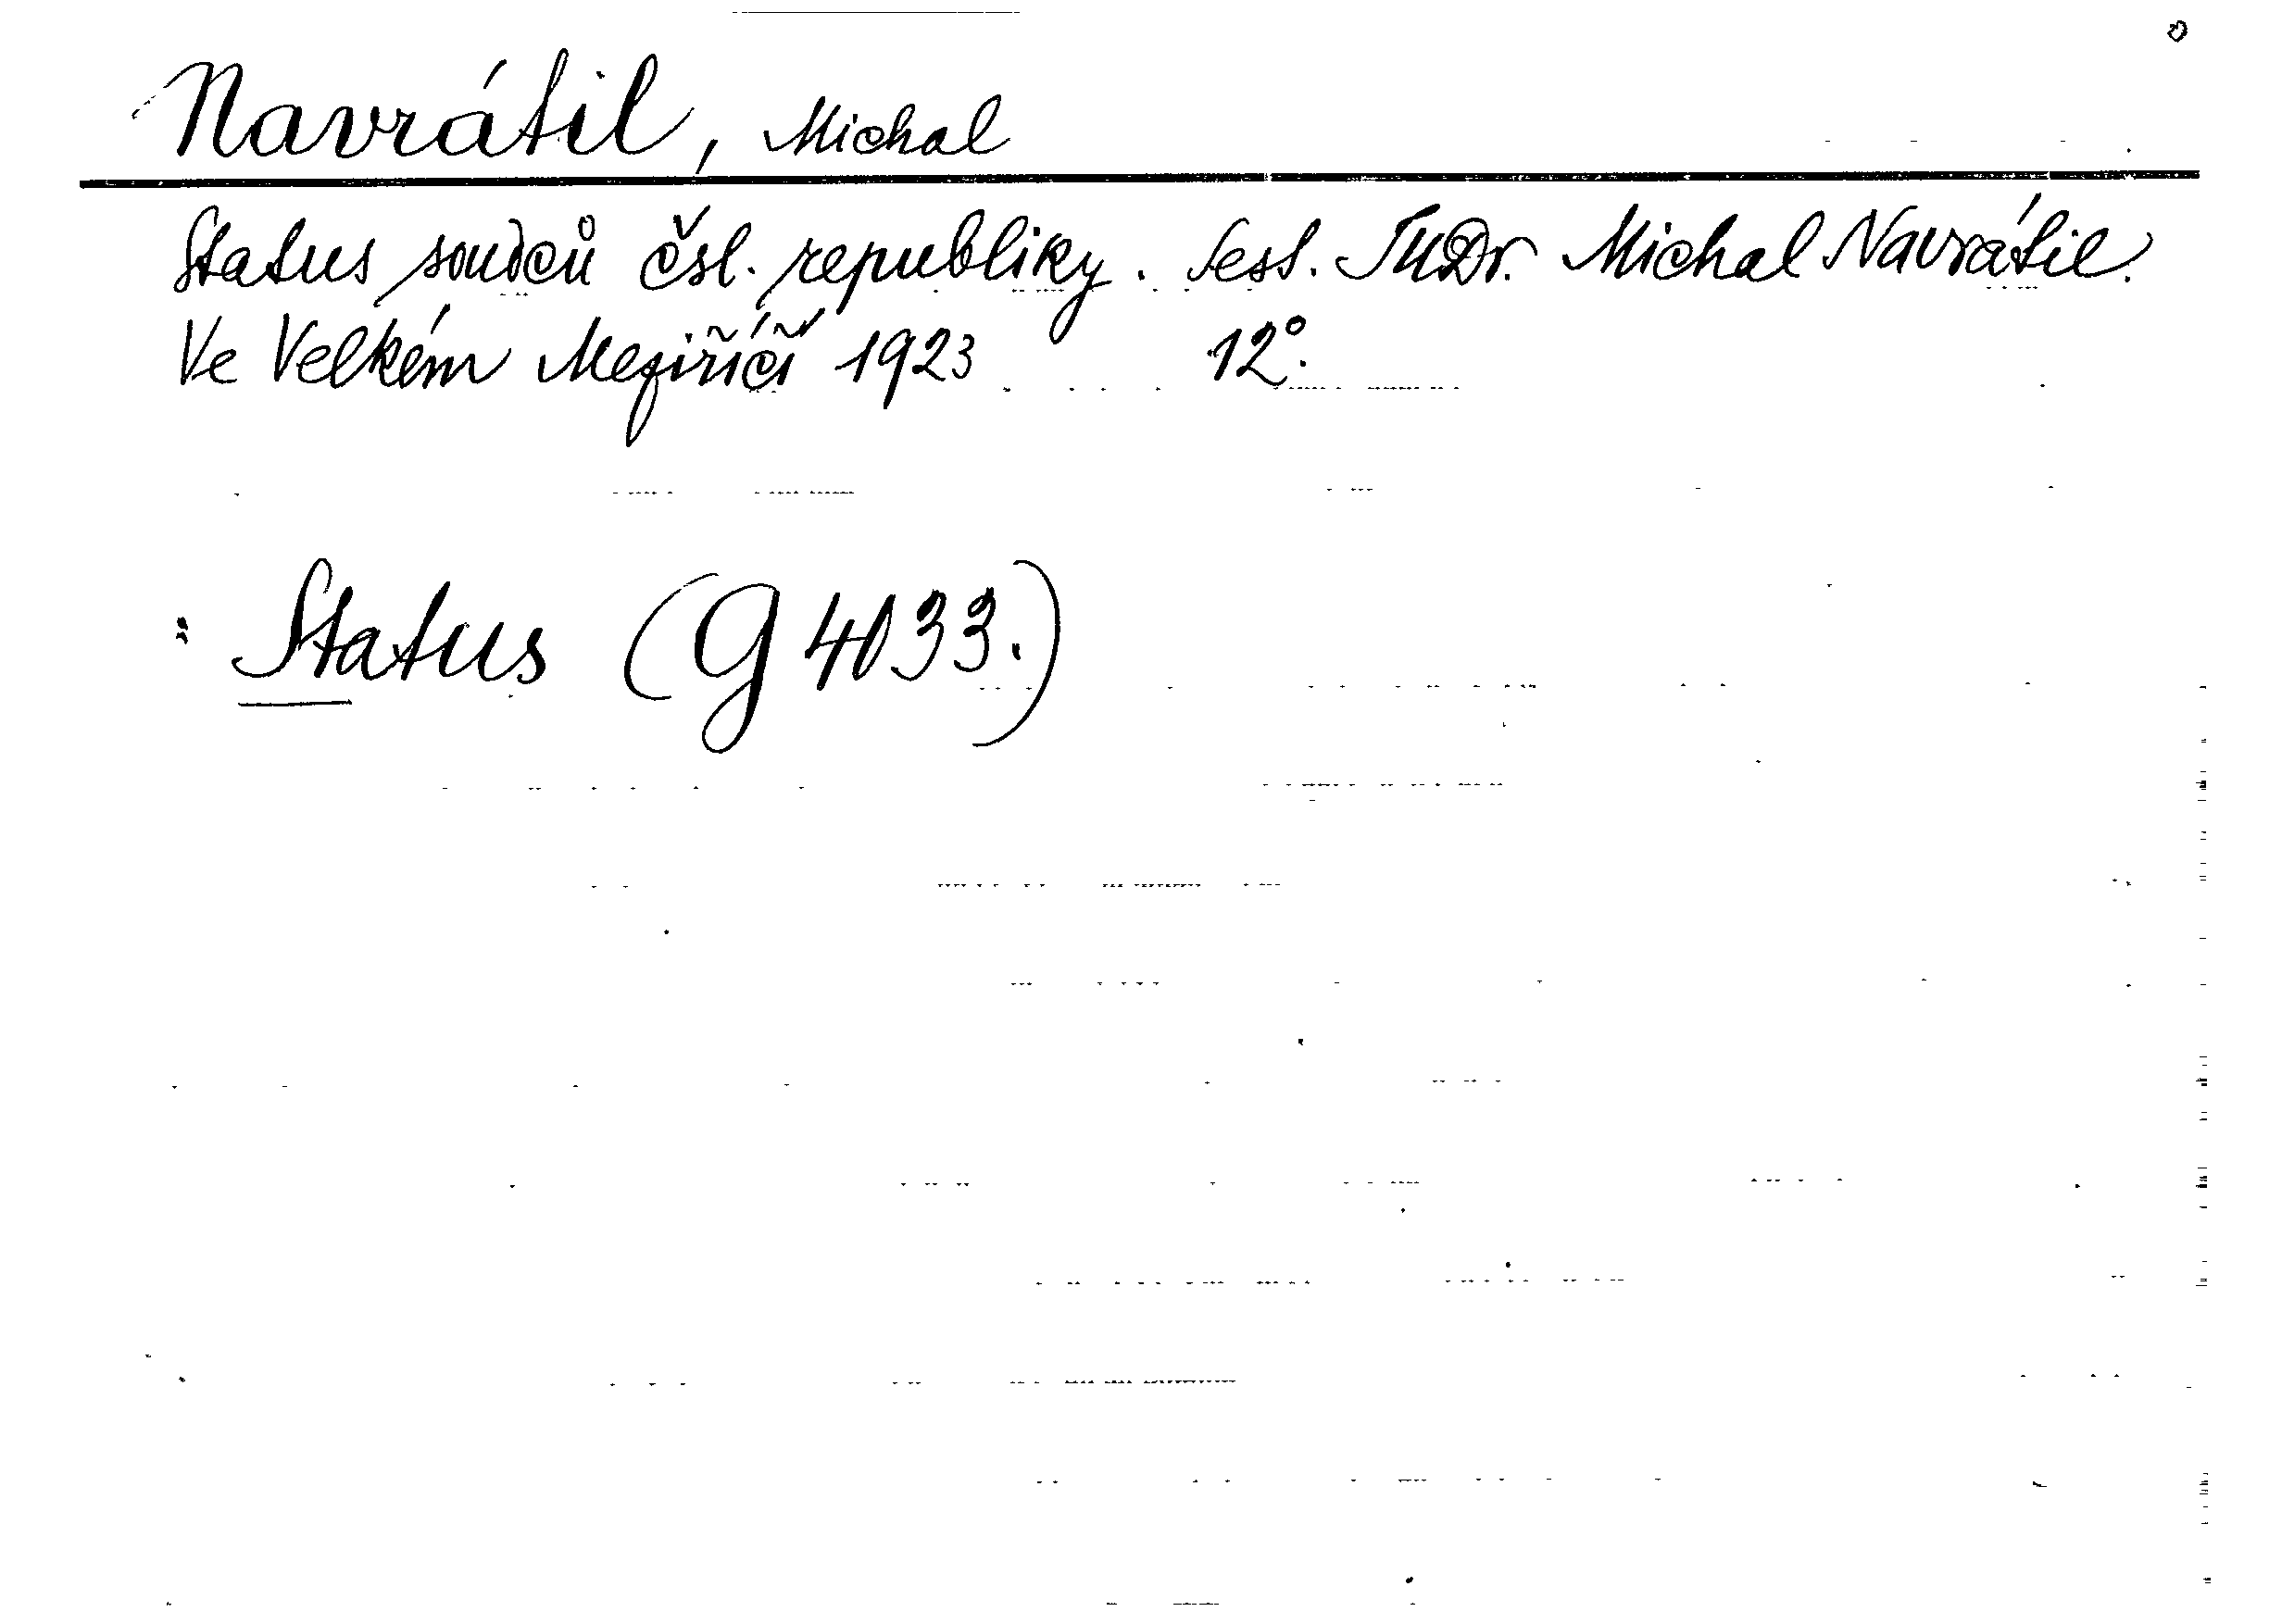 Navrátil, Michal
Status soudců čsl. republiky. Sest. JUDr. Michal Navrátil.
Ve Velkém Meziříčí 1923 12°.
: Status (G 4033.)